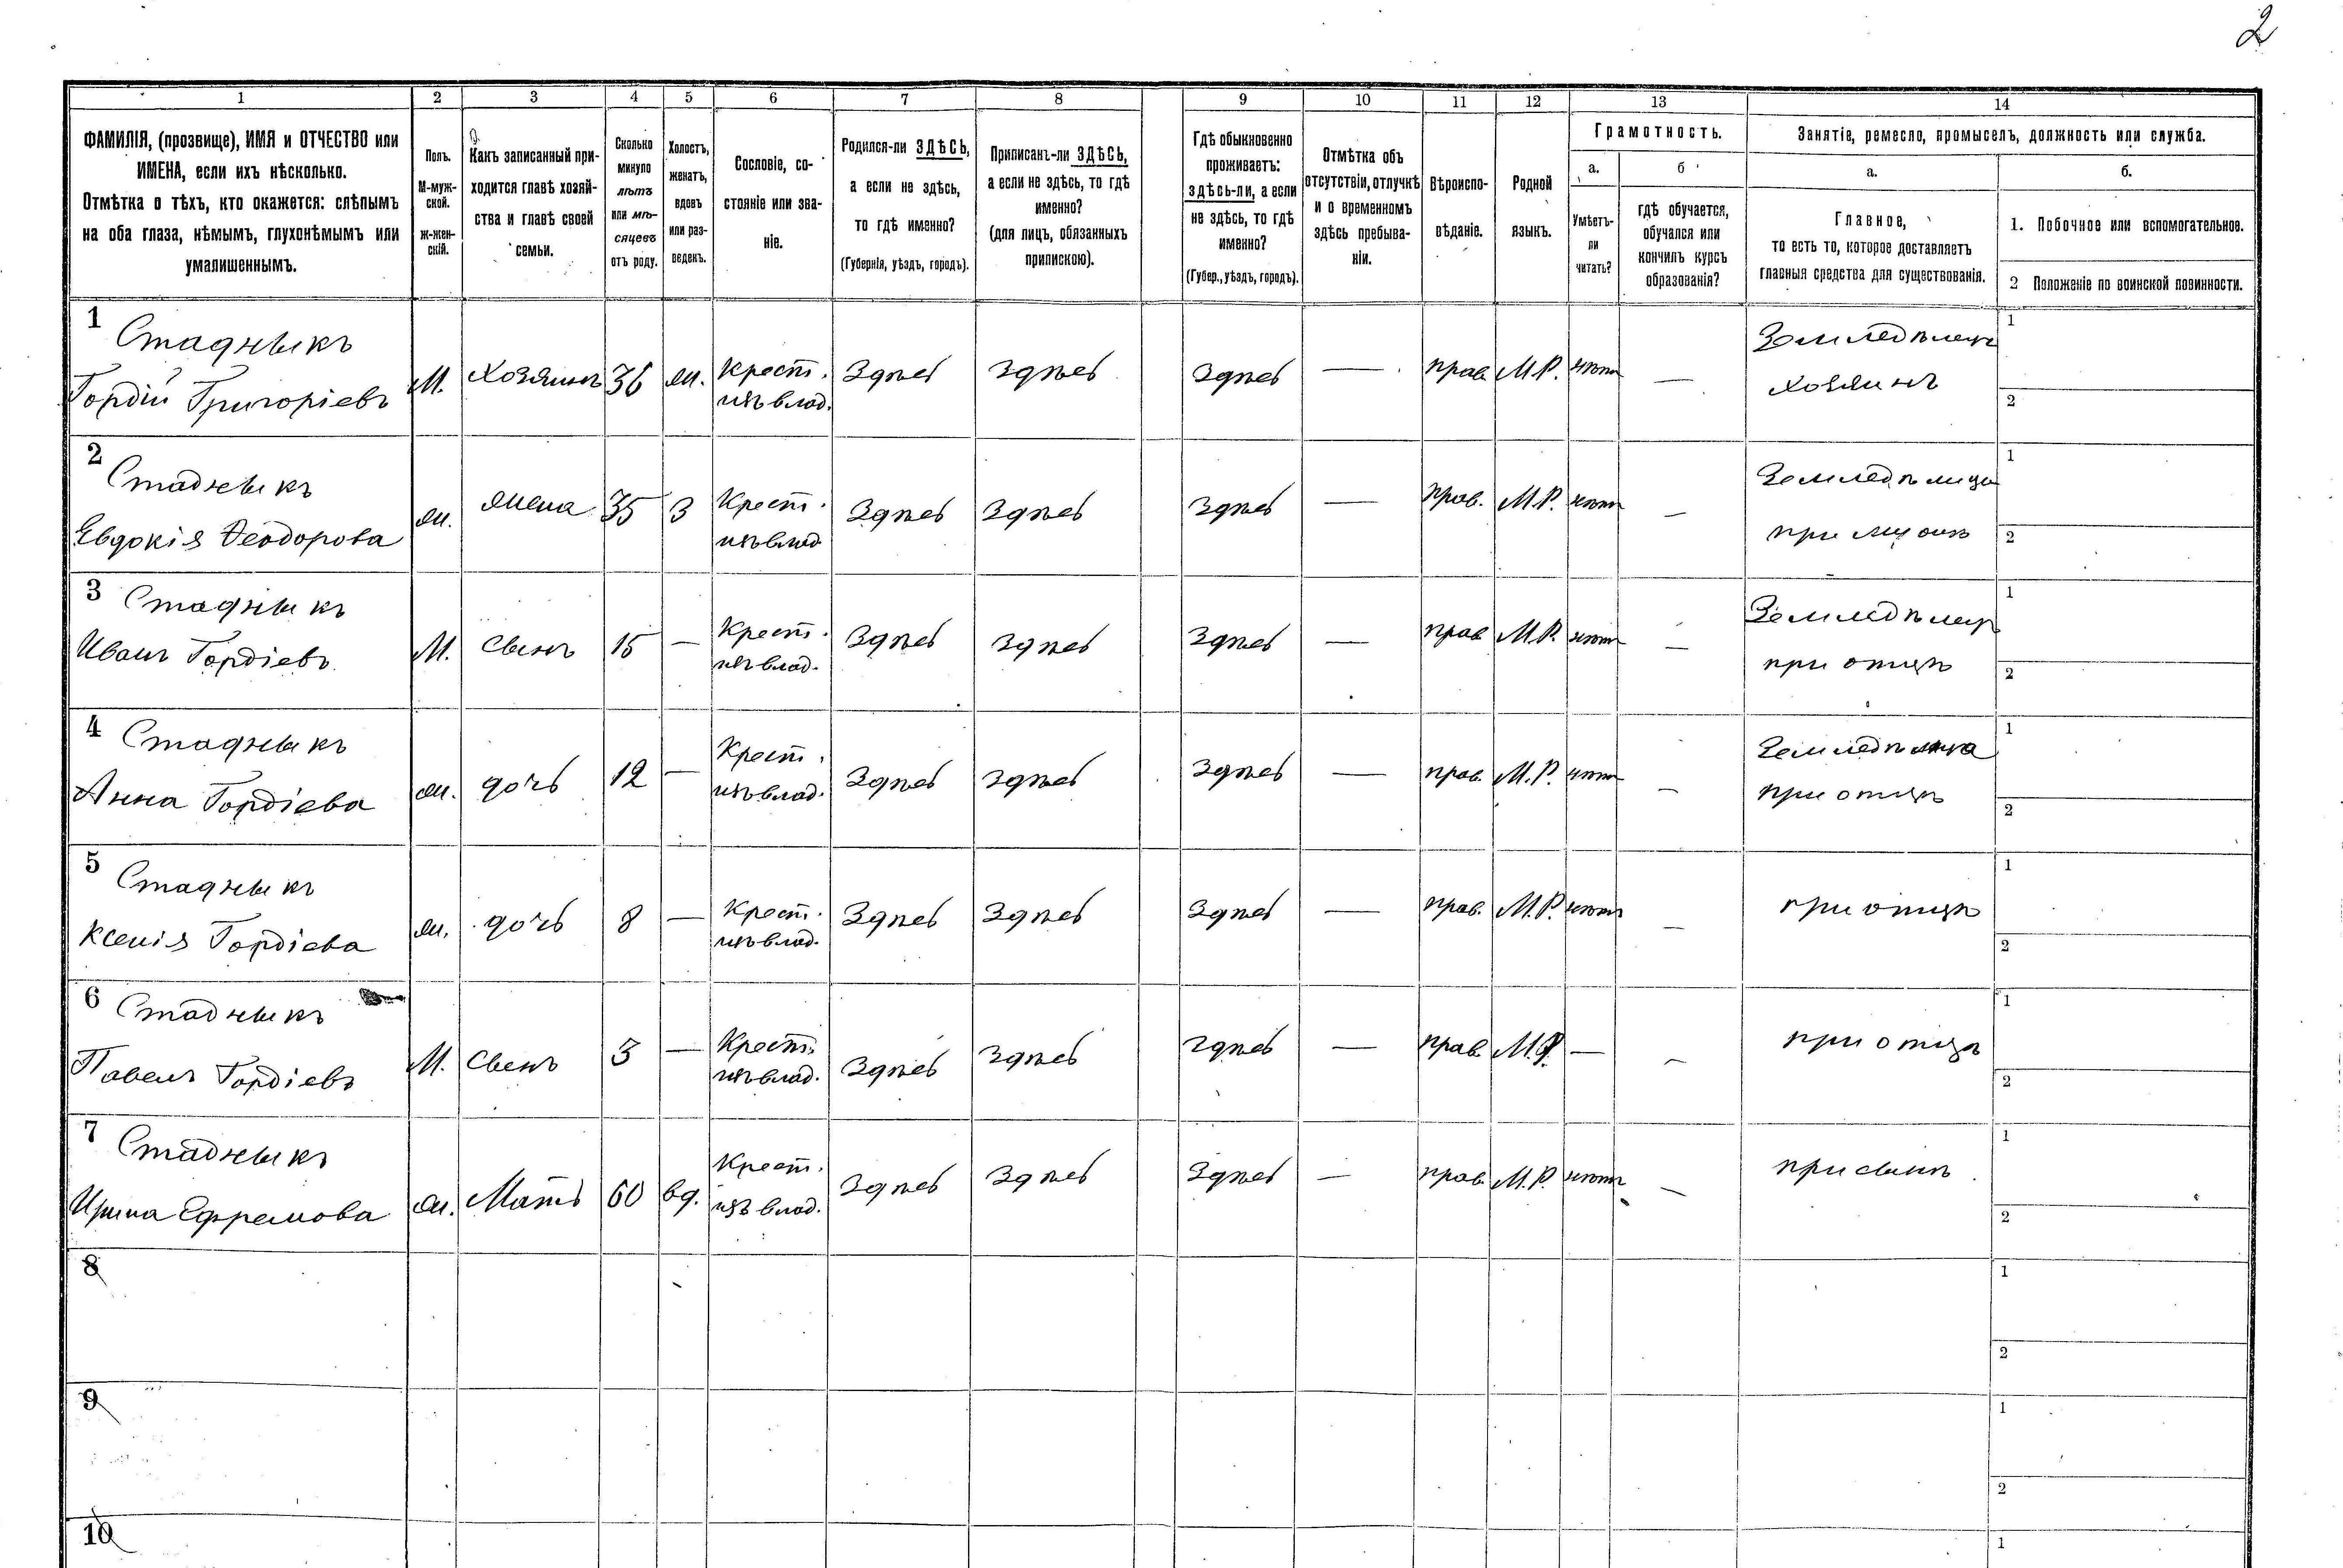 2
1 2 3 4 5 6 7 8 9 10 11 12 13 14
ФАМИЛІЯ, (прозвище), ИМЯ и ОТЧЕСТВО или
ИМЕНА, если ихъ нѣсколько.
Отмѣтка о тѣхъ, кто окажется: слѣпымъ
на оба глаза, нѣмымъ, глухонѣмымъ или
умалишеннымъ.
Полъ.
М-муж-
ской.
Ж-жен-
скій.
Какъ записанный при-
ходится главѣ хозяй-
ства и главѣ своей
семьи.
Сколько
минуло
лѣтъ
или мѣ-
сяцевъ
отъ роду.
Холостъ,
женатъ,
вдовъ
или раз-
веденъ.
Сословіе, со-
стояніе или зва-
ніе.
Родился-ли ЗДѢСЬ,
а если не здѣсь,
то гдѣ именно?
(Губернія, уѣздъ, городъ).
Приписанъ-ли ЗДѢСЬ,
а если не здѣсь, то гдѣ
именно?
(для лицъ, обязанныхъ
припискою).
Гдѣ обыкновенно
проживаетъ:
здѣсь-ли, а если
не здѣсь, то гдѣ
именно?
(Губер., уѣздъ, городъ).
Отмѣтка объ
отсутствіи, отлучкѣ
и о временномъ
здѣсь пребыва-
ніи.
Вѣроиспо-
вѣданіе.
Родной
языкъ.
Грамотность.
а.
Умѣетъ-
ли
читать?
б
гдѣ обучается,
обучался или
кончилъ курсъ
образованія?
Занятіе, ремесло, промыселъ, должность или служба.
а.
Главное,
то есть то, которое доставляетъ
главныя средства для существованія.
б.
1. Побочное или вспомогательное.
2 Положеніе по воинской повинности.
1 Стадныкъ
Гордій Григоріевъ
М. Хозяинъ 36 ж. Крест.
изъ влад.
Здѣсь здѣсь Здѣсь — прав М.Р. нѣтъ —
Земледѣлецъ
хозяинъ
1
2
2 Стадныкъ
Евдокія Ѳеодорова
ж. жена 35 З Крест.
изъ влад
Здѣсь Здѣсь Здѣсь — прав. М.Р. нѣтъ —
Земледѣлица
при мужѣ
1
2
3 Стадныкъ
Иванъ Гордіевъ
М. сынъ 15 — Крест.
изъ влад.
Здѣсь здѣсь Здѣсь — прав М.Р. нѣтъ —
Земледѣлецъ
при отцѣ
1
2
4 Стадныкъ
Анна Гордіева
ж. дочь 12 — Крест.
изъ влад.
Здѣсь здѣсь Здѣсь — прав. М.Р. нѣтъ —
при отцѣ
1
2
5 Стадныкъ
Ксенія Гордіева
ж. дочь 8 — Крест.
изъ влад.
Здѣсь Здѣсь Здѣсь — прав. М.Р. нѣтъ —
при отцѣ
1
2
6 Стадныкъ
Павелъ Гордіевъ
М. сынъ 3 — Крест.
изъ влад.
Здѣсь здѣсь здѣсь — прав. М.Р. — —
при отцѣ
1
2
7 Стадныкъ
Ирина Ефремова
ж. Мать 60 вд. Крест.
изъ влад.
Здѣсь Здѣсь Здѣсь — прав. М.Р. нѣтъ —
при сынѣ
1
2
8
1
2
9
1
2
10
1